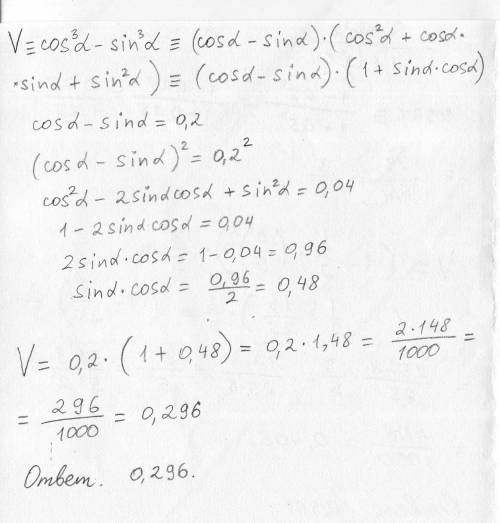 V ≡ cos³α - sin³α ≡ (cosα - sinα)·(cos²α + cosα·
·sinα + sin²α) ≡ (cosα - sinα)·(1 + sinα·cosα)
cosα - sinα = 0,2
(cosα - sinα)² = 0,2²
cos²α - 2sinαcosα + sin²α = 0,04
1 - 2sinαcosα = 0,04
2sinα·cosα = 1 - 0,04 = 0,96
sinα·cosα = 0,96/2 = 0,48
V = 0,2·(1 + 0,48) = 0,2·1,48 = 2·148/1000 =
= 296/1000 = 0,296
Ответ. 0,296.